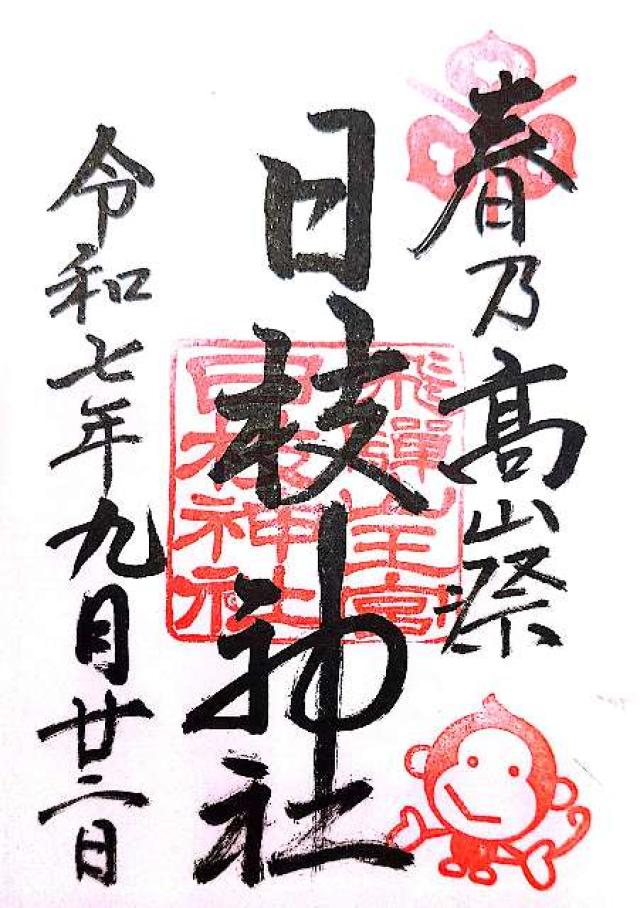 春乃高山祭
日枝神社
飛騨山王宮
日枝神社
令和七年九月廿二日